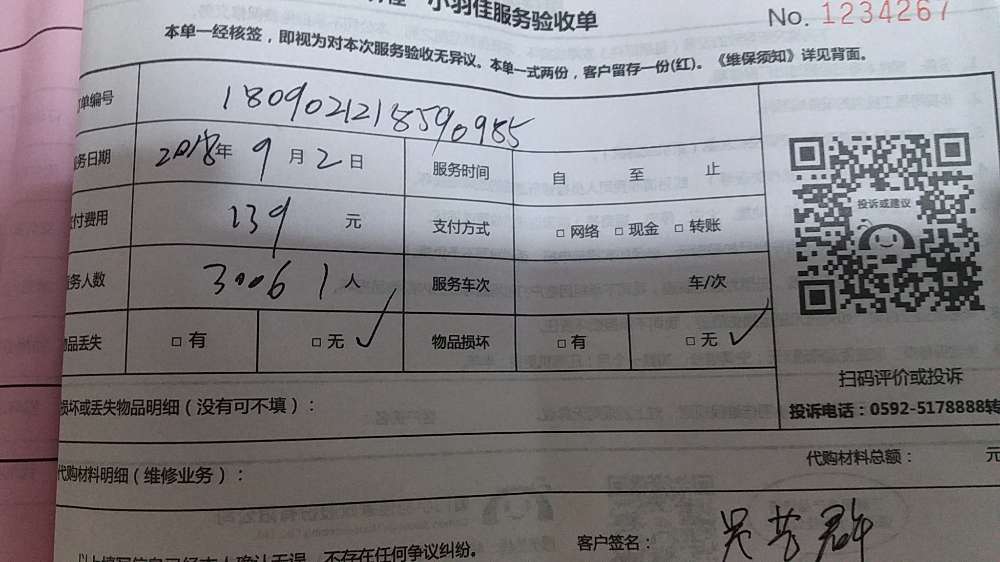 小羽佳服务验收单
No. 1234267
本单一经核签，即视为对本次服务验收无异议。本单一式两份，客户留存一份(红)。《维保须知》详见背面。
单编号 1809021218590985
务日期 2018年 9 月 2 日 服务时间 自 至 止
付费用 139 元 支付方式 □ 网络 □ 现金 □ 转账
务人数 3006 1 人 服务车次 车/次
品丢失 □ 有 □ 无 ✓ 物品损坏 □ 有 □ 无 ✓
投诉或建议
扫码评价或投诉
投诉电话：0592-5178888转
损坏或丢失物品明细（没有可不填）：
代购材料明细（维修业务）：
代购材料总额： 元
以上填写信息已经本人确认无误，不存在任何争议纠纷。
客户签名： 吴芳群